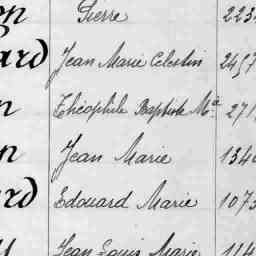 on Pierre 223
ard Jean Marie Célestin 2457
n Théophile Baptiste Mie 271
n Jean Marie 134
rd Edouard Marie 1073
Jean Louis Marie 114